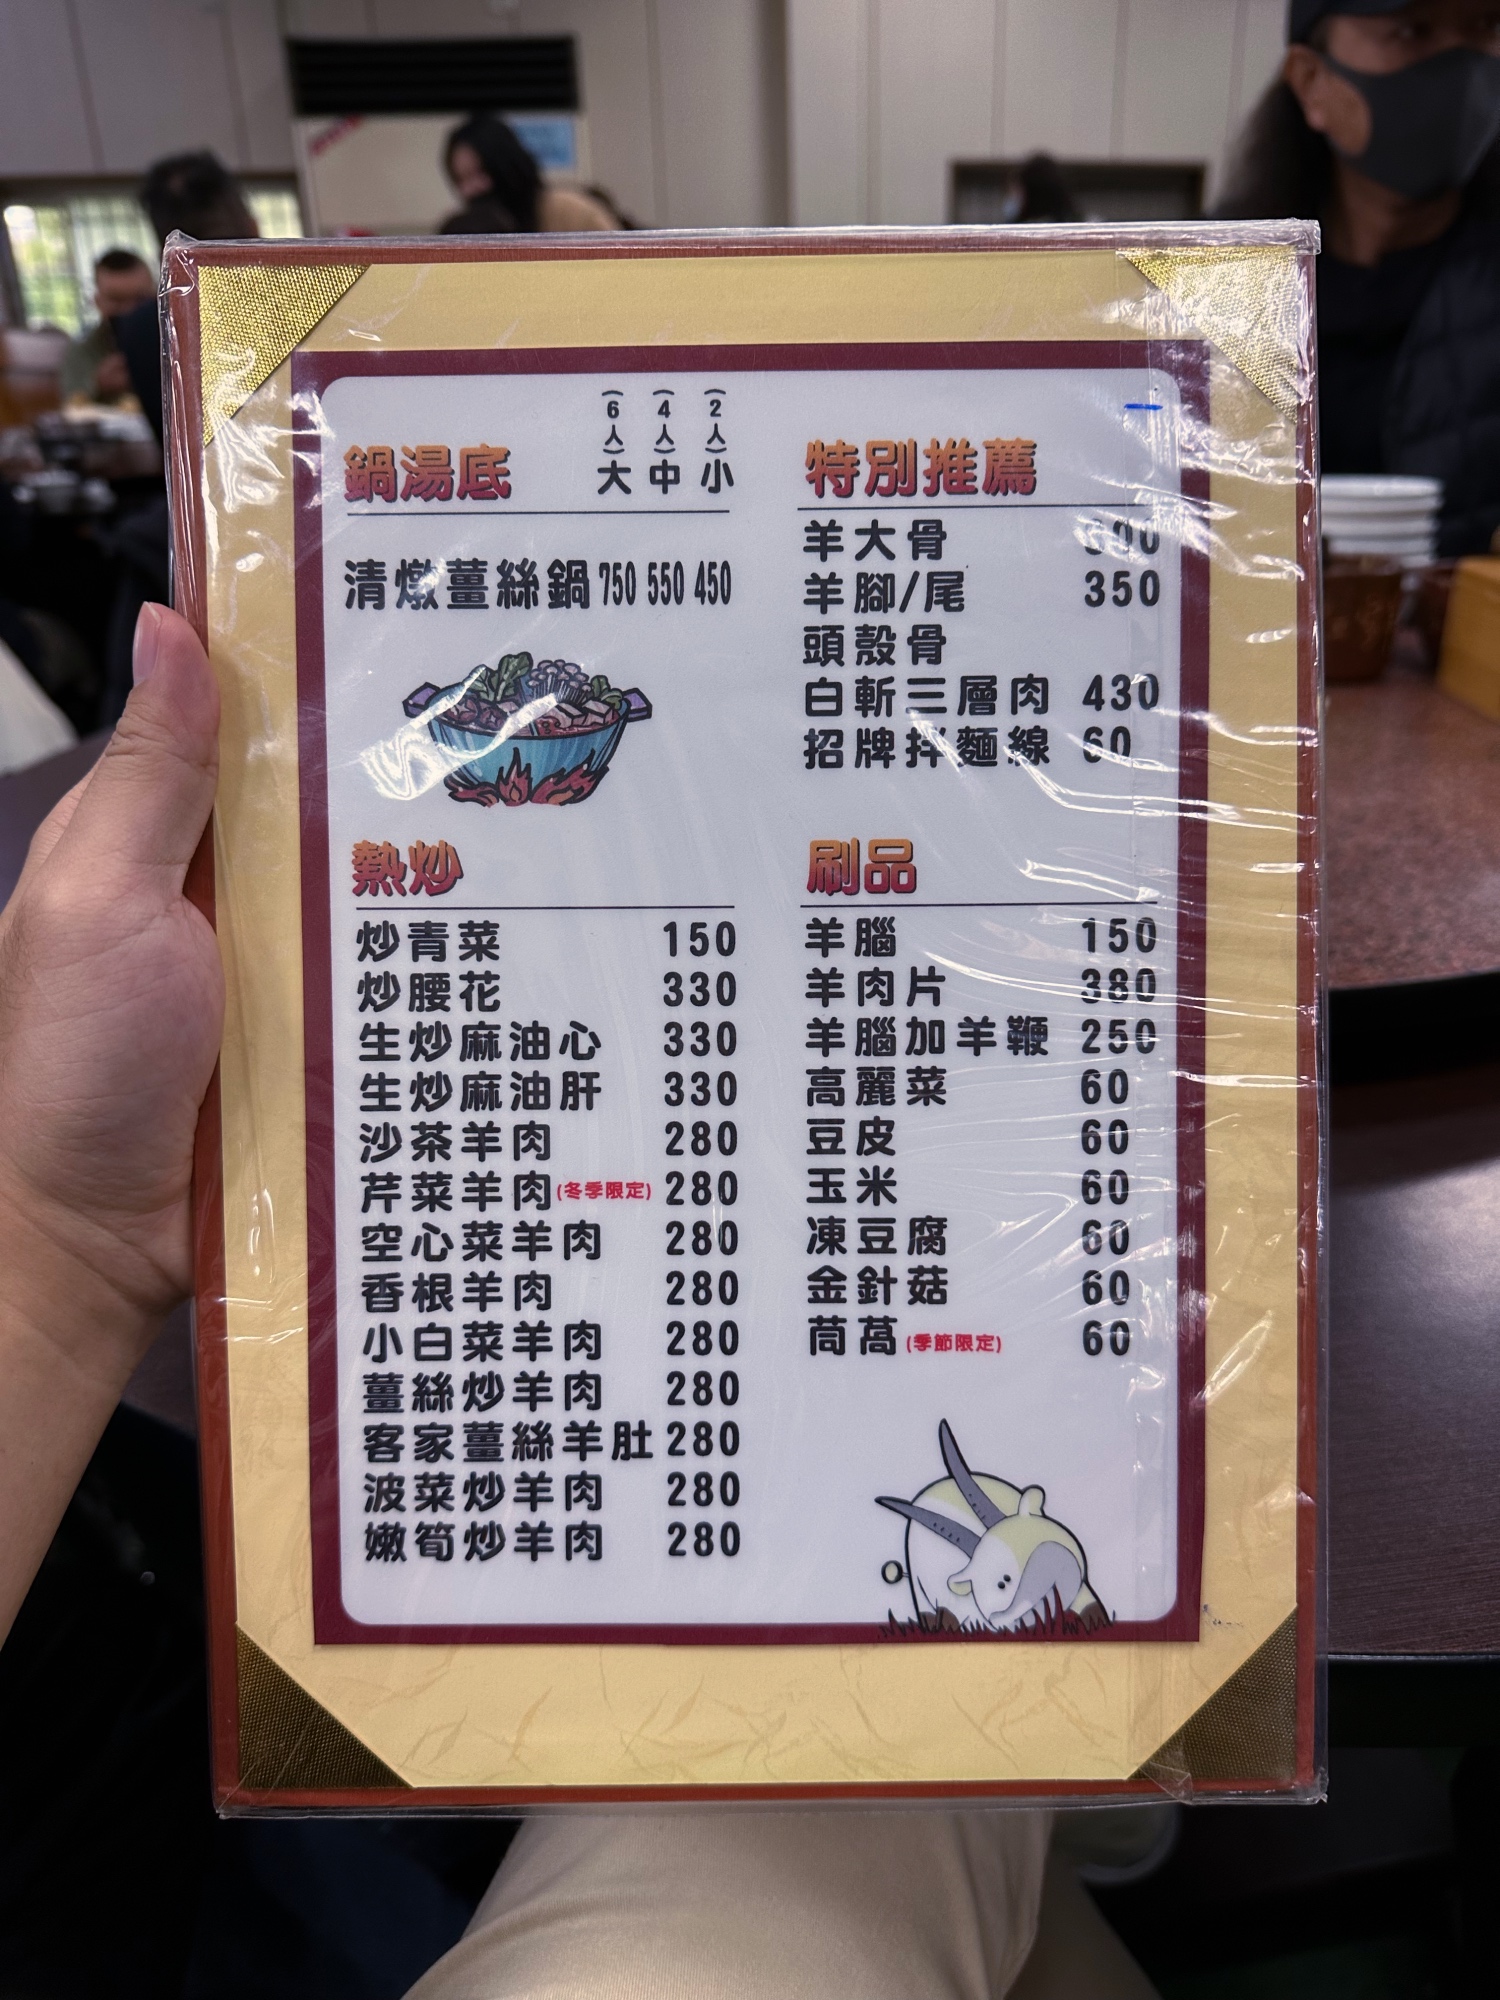 鍋湯底 (6人)大 (4人)中 (2人)小
清燉薑絲鍋 750 550 450
熱炒
炒青菜 150
炒腰花 330
生炒麻油心 330
生炒麻油肝 330
沙茶羊肉 280
芹菜羊肉(冬季限定) 280
空心菜羊肉 280
香根羊肉 280
小白菜羊肉 280
薑絲炒羊肉 280
客家薑絲羊肚 280
波菜炒羊肉 280
嫩筍炒羊肉 280
特別推薦
羊大骨
羊腳/尾 350
頭殼骨
白斬三層肉 430
招牌拌麵線 60
刷品
羊腦 150
羊肉片 380
羊腦加羊鞭 250
高麗菜 60
豆皮 60
玉米 60
凍豆腐 60
金針菇 60
茼萵(季節限定) 60